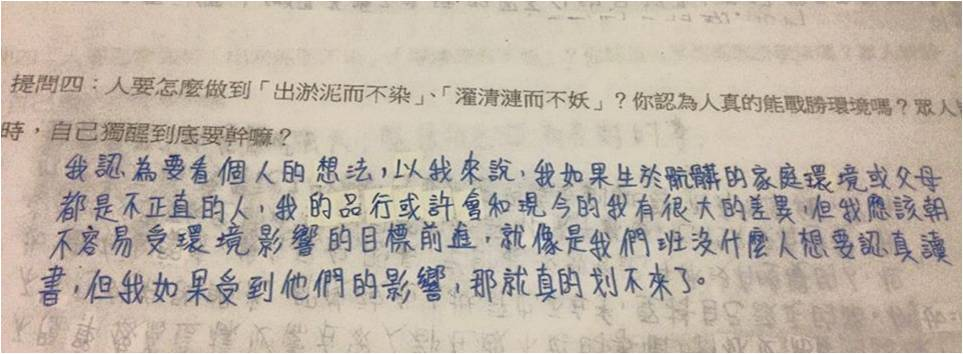 提問四：人要怎麼做到「出淤泥而不染」、「濯清漣而不妖」？你認為人真的能戰勝環境嗎？眾人
時，自己獨醒到底要幹嘛？
我認為要看個人的想法，以我來說，我如果生於骯髒的家庭環境或父母
都是不正直的人，我的品行或許會和現今的我有很大的差異，但我應該朝
不容易受環境影響的目標前進，就像是我們班沒什麼人想要認真讀
書，但我如果受到他們的影響，那就真的划不來了。